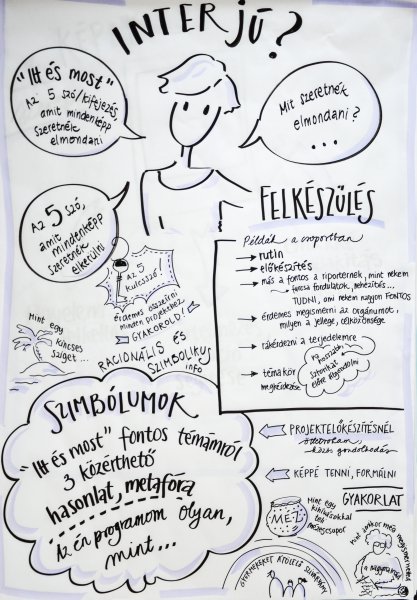 INTERJÚ?
"Itt és most"
AZ 5 szó/kifejezés,
amit mindenképp
szeretnék
elmondani
Mit szeretnék
elmondani?
...
AZ 5 szó,
amit
mindenképp
szeretnék
elkerülni
AZ 5
kulcsszó!
érdemes összeírni
minden projekthez
GYAKOROLD!
RACIONÁLIS ÉS
SZIMBOLIKUS
info
Mint egy
kincses
sziget...
FELKÉSZÜLÉS
Példák a csoportban
rutin
előkészítés
más a fontos a riporternek, mint nekem
furcsa fordulatok, nehezítés...
TUDNI, ami nekem nagyon FONTOS
érdemes megismerni az orgánumot,
milyen a jellege, célközönsége
rákérdezni a terjedelemre
témakör
megkérdezése
hosszabb
sztorikat
előre átgondolni
SZIMBÓLUMOK
"Itt és most" fontos témámról
3 közérthető
hasonlat, metafora
Az én programom olyan,
mint...
PROJEKTELŐKÉSZÍTÉSNÉL
közös gondolkodás
KÉPPÉ TENNI, FORMÁLNI
GYAKORLAT
Mint egy
kihívásokkal
teli
mézescsupor
MÉZ
GYERMEKEKET ÁTÖLELŐ SZIVÁRVÁNY
mint amikor
a nagymamád